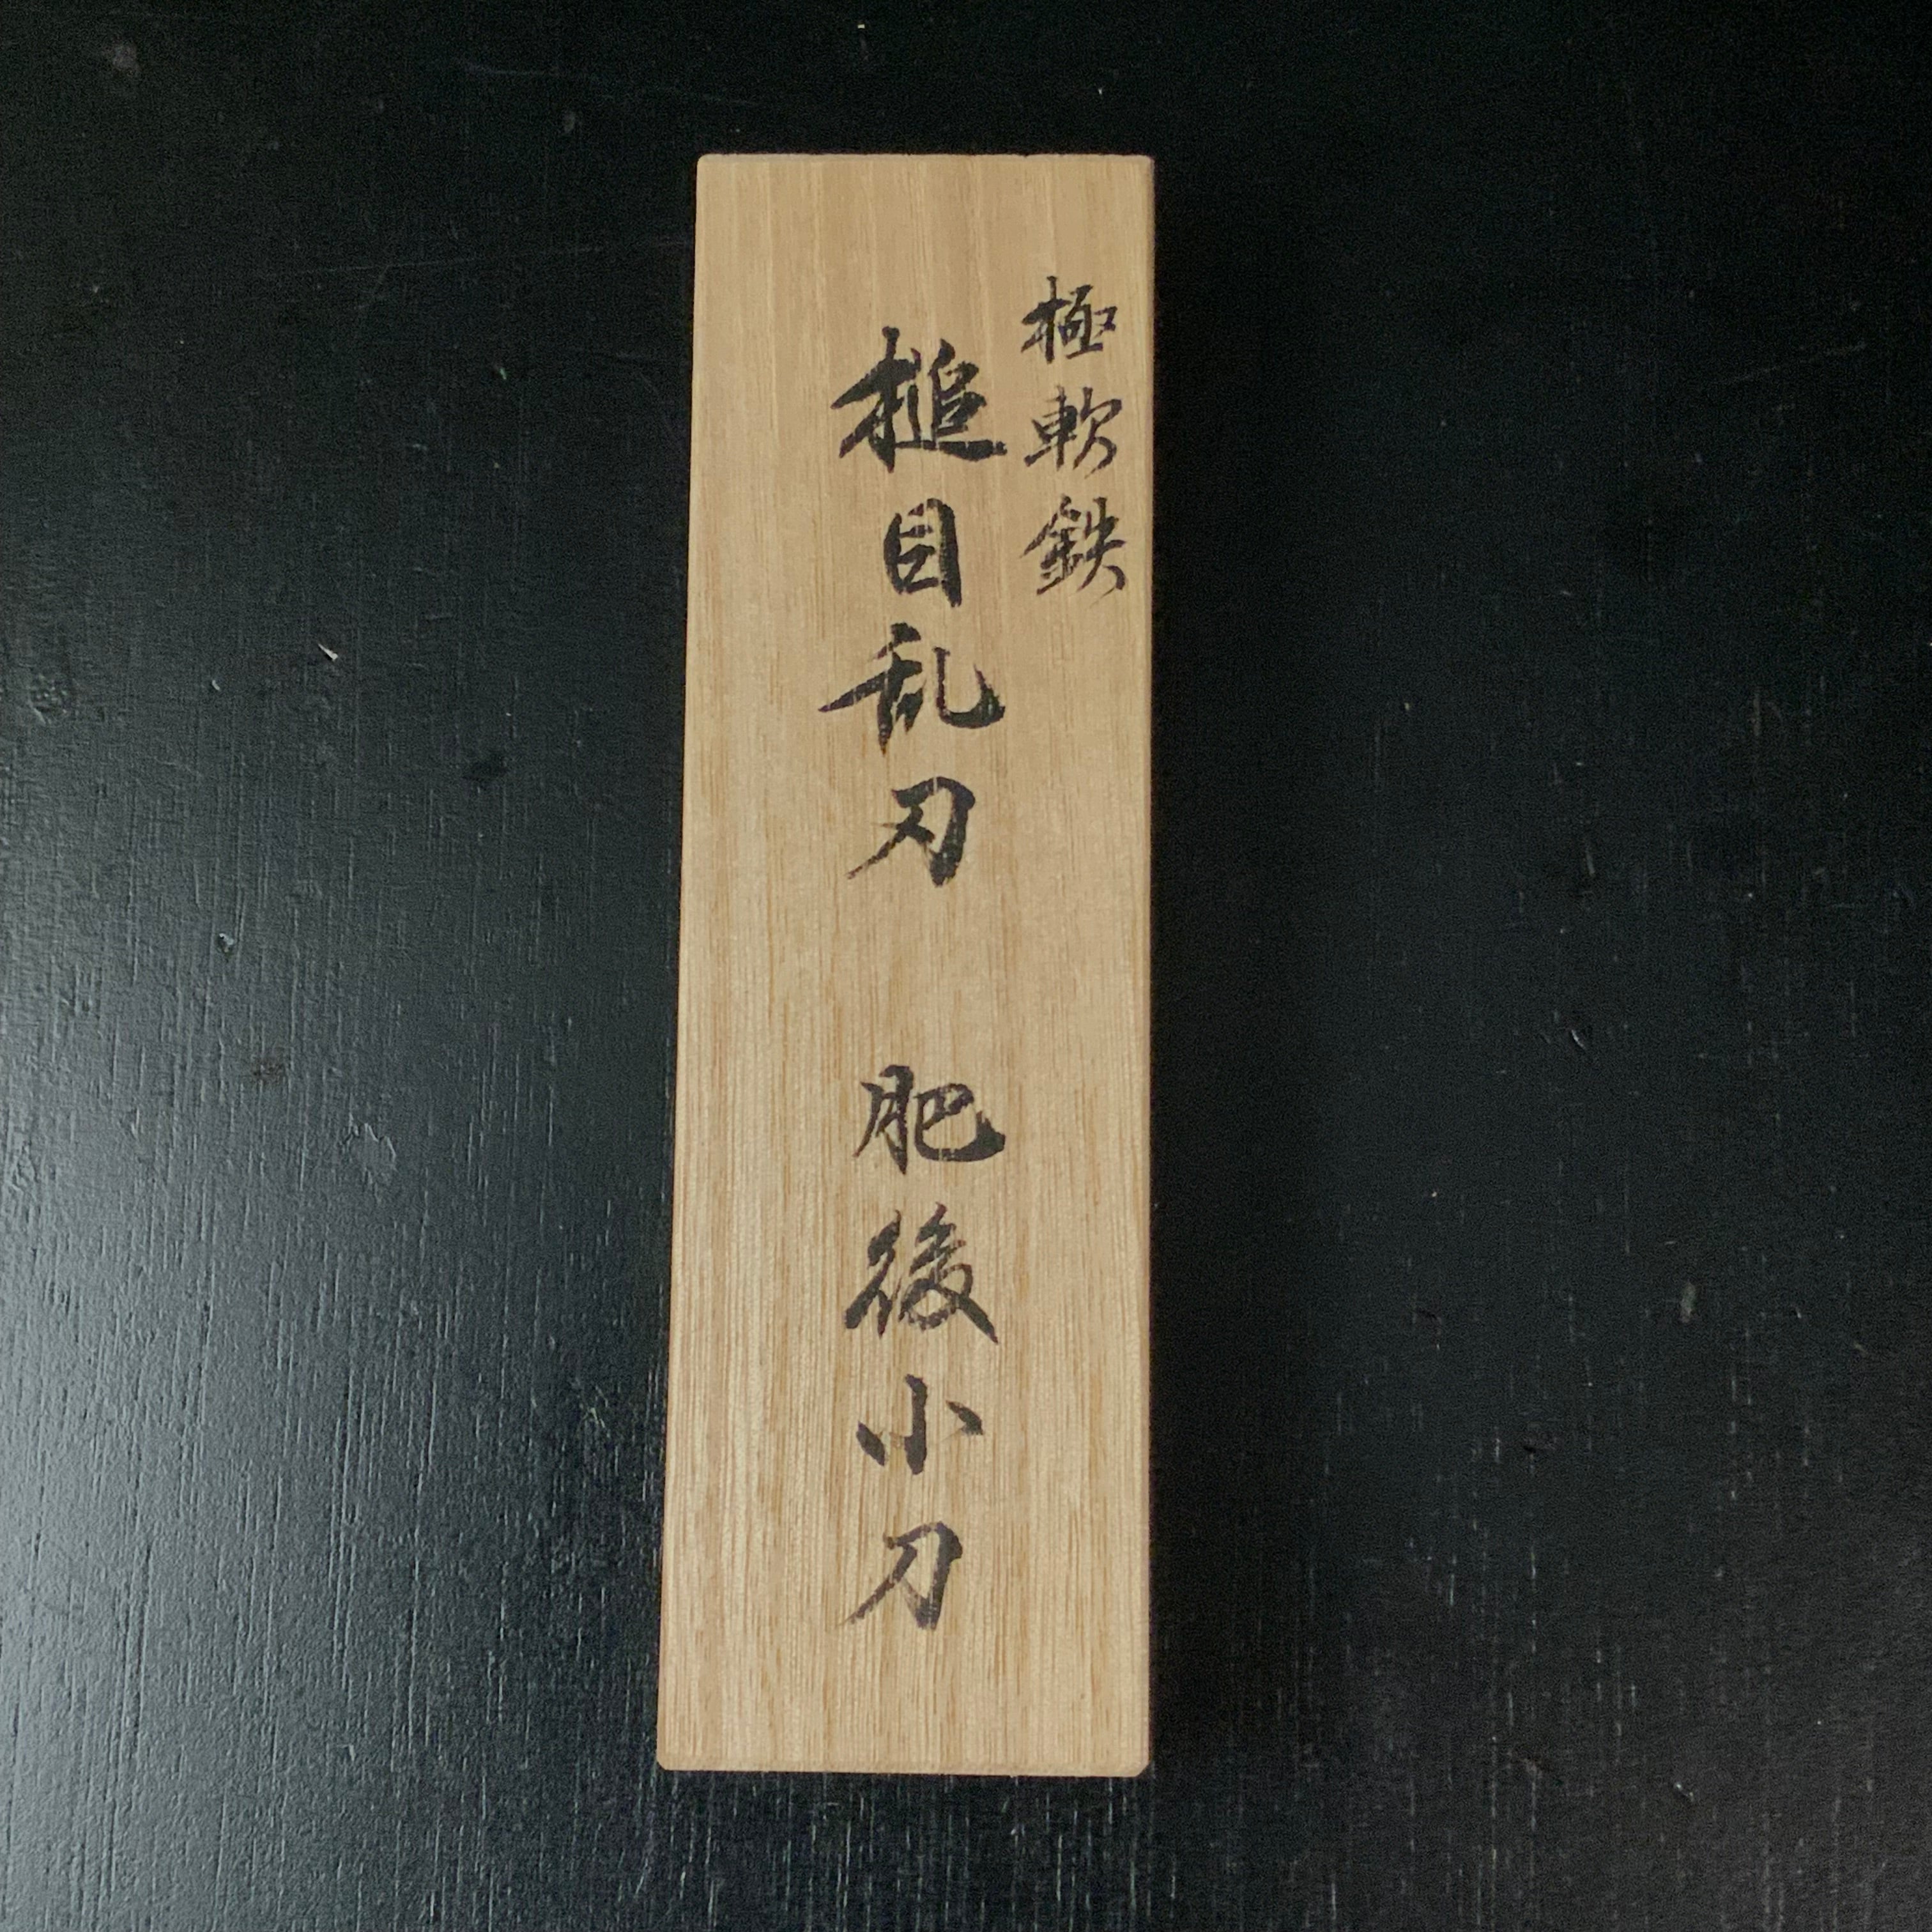 極軟鉄
槌目乱刃 肥後小刀